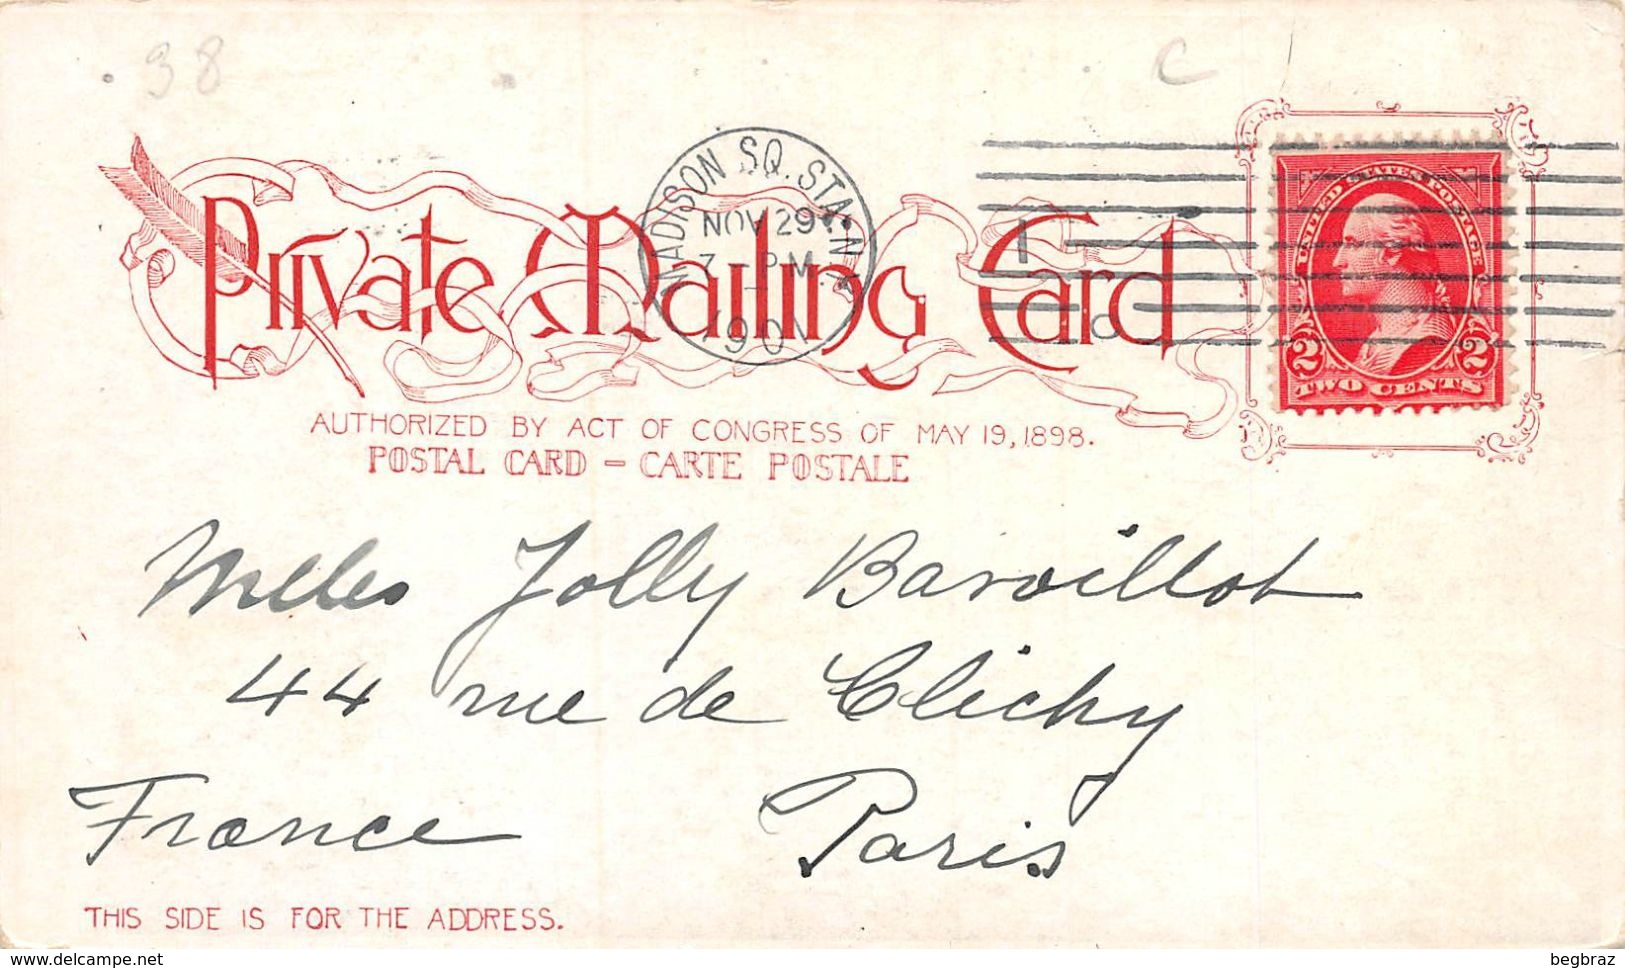 38
C
Private Mailing Card
MADISON SQ. STA. N.Y.
NOV 29
7 - PM
1901
UNITED STATES POSTAGE
2 2
TWO CENTS
AUTHORIZED BY ACT OF CONGRESS OF MAY 19, 1898.
POSTAL CARD - CARTE POSTALE
Melles Jolly Barvillot
44 rue de Clichy
France Paris
THIS SIDE IS FOR THE ADDRESS.
delcampe.net
begbraz